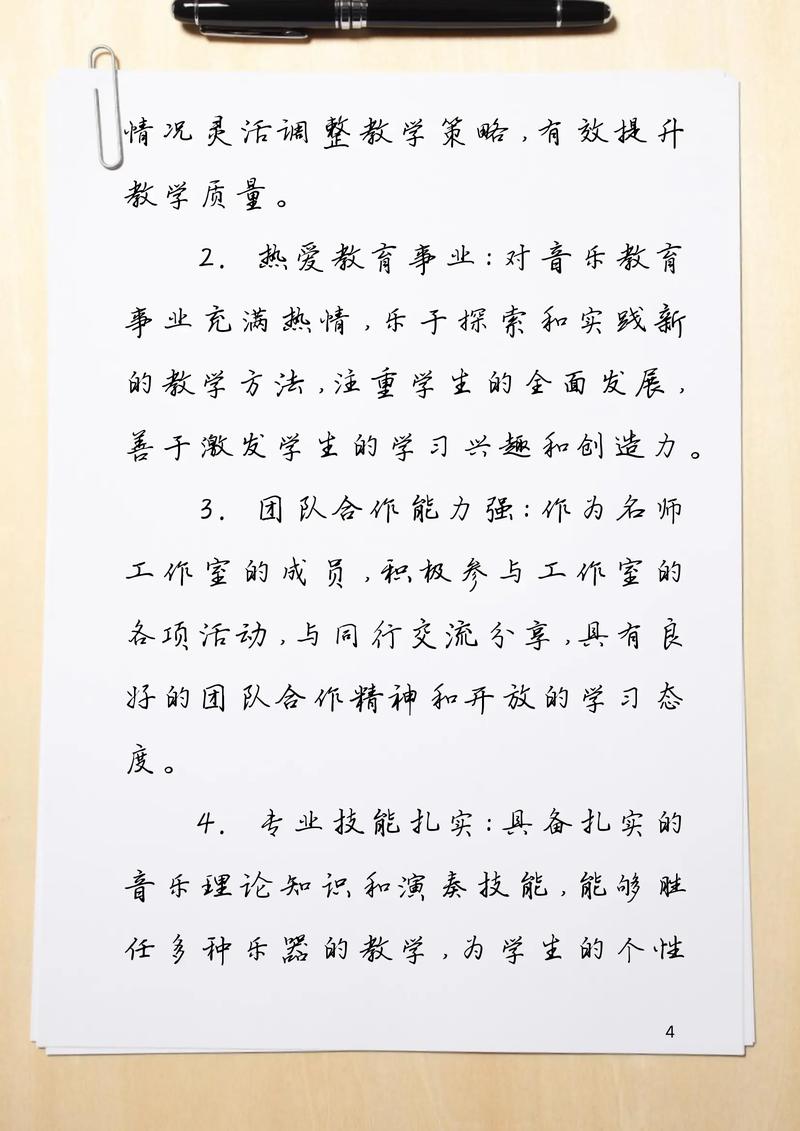 情况灵活调整教学策略,有效提升
教学质量。
2. 热爱教育事业:对音乐教育
事业充满热情,乐于探索和实践新
的教学方法,注重学生的全面发展,
善于激发学生的学习兴趣和创造力。
3. 团队合作能力强:作为名师
工作室的成员,积极参与工作室的
各项活动,与同行交流分享,具有良
好的团队合作精神和开放的学习态
度。
4. 专业技能扎实:具备扎实的
音乐理论知识和演奏技能,能够胜
任多种乐器的教学,为学生的个性
4